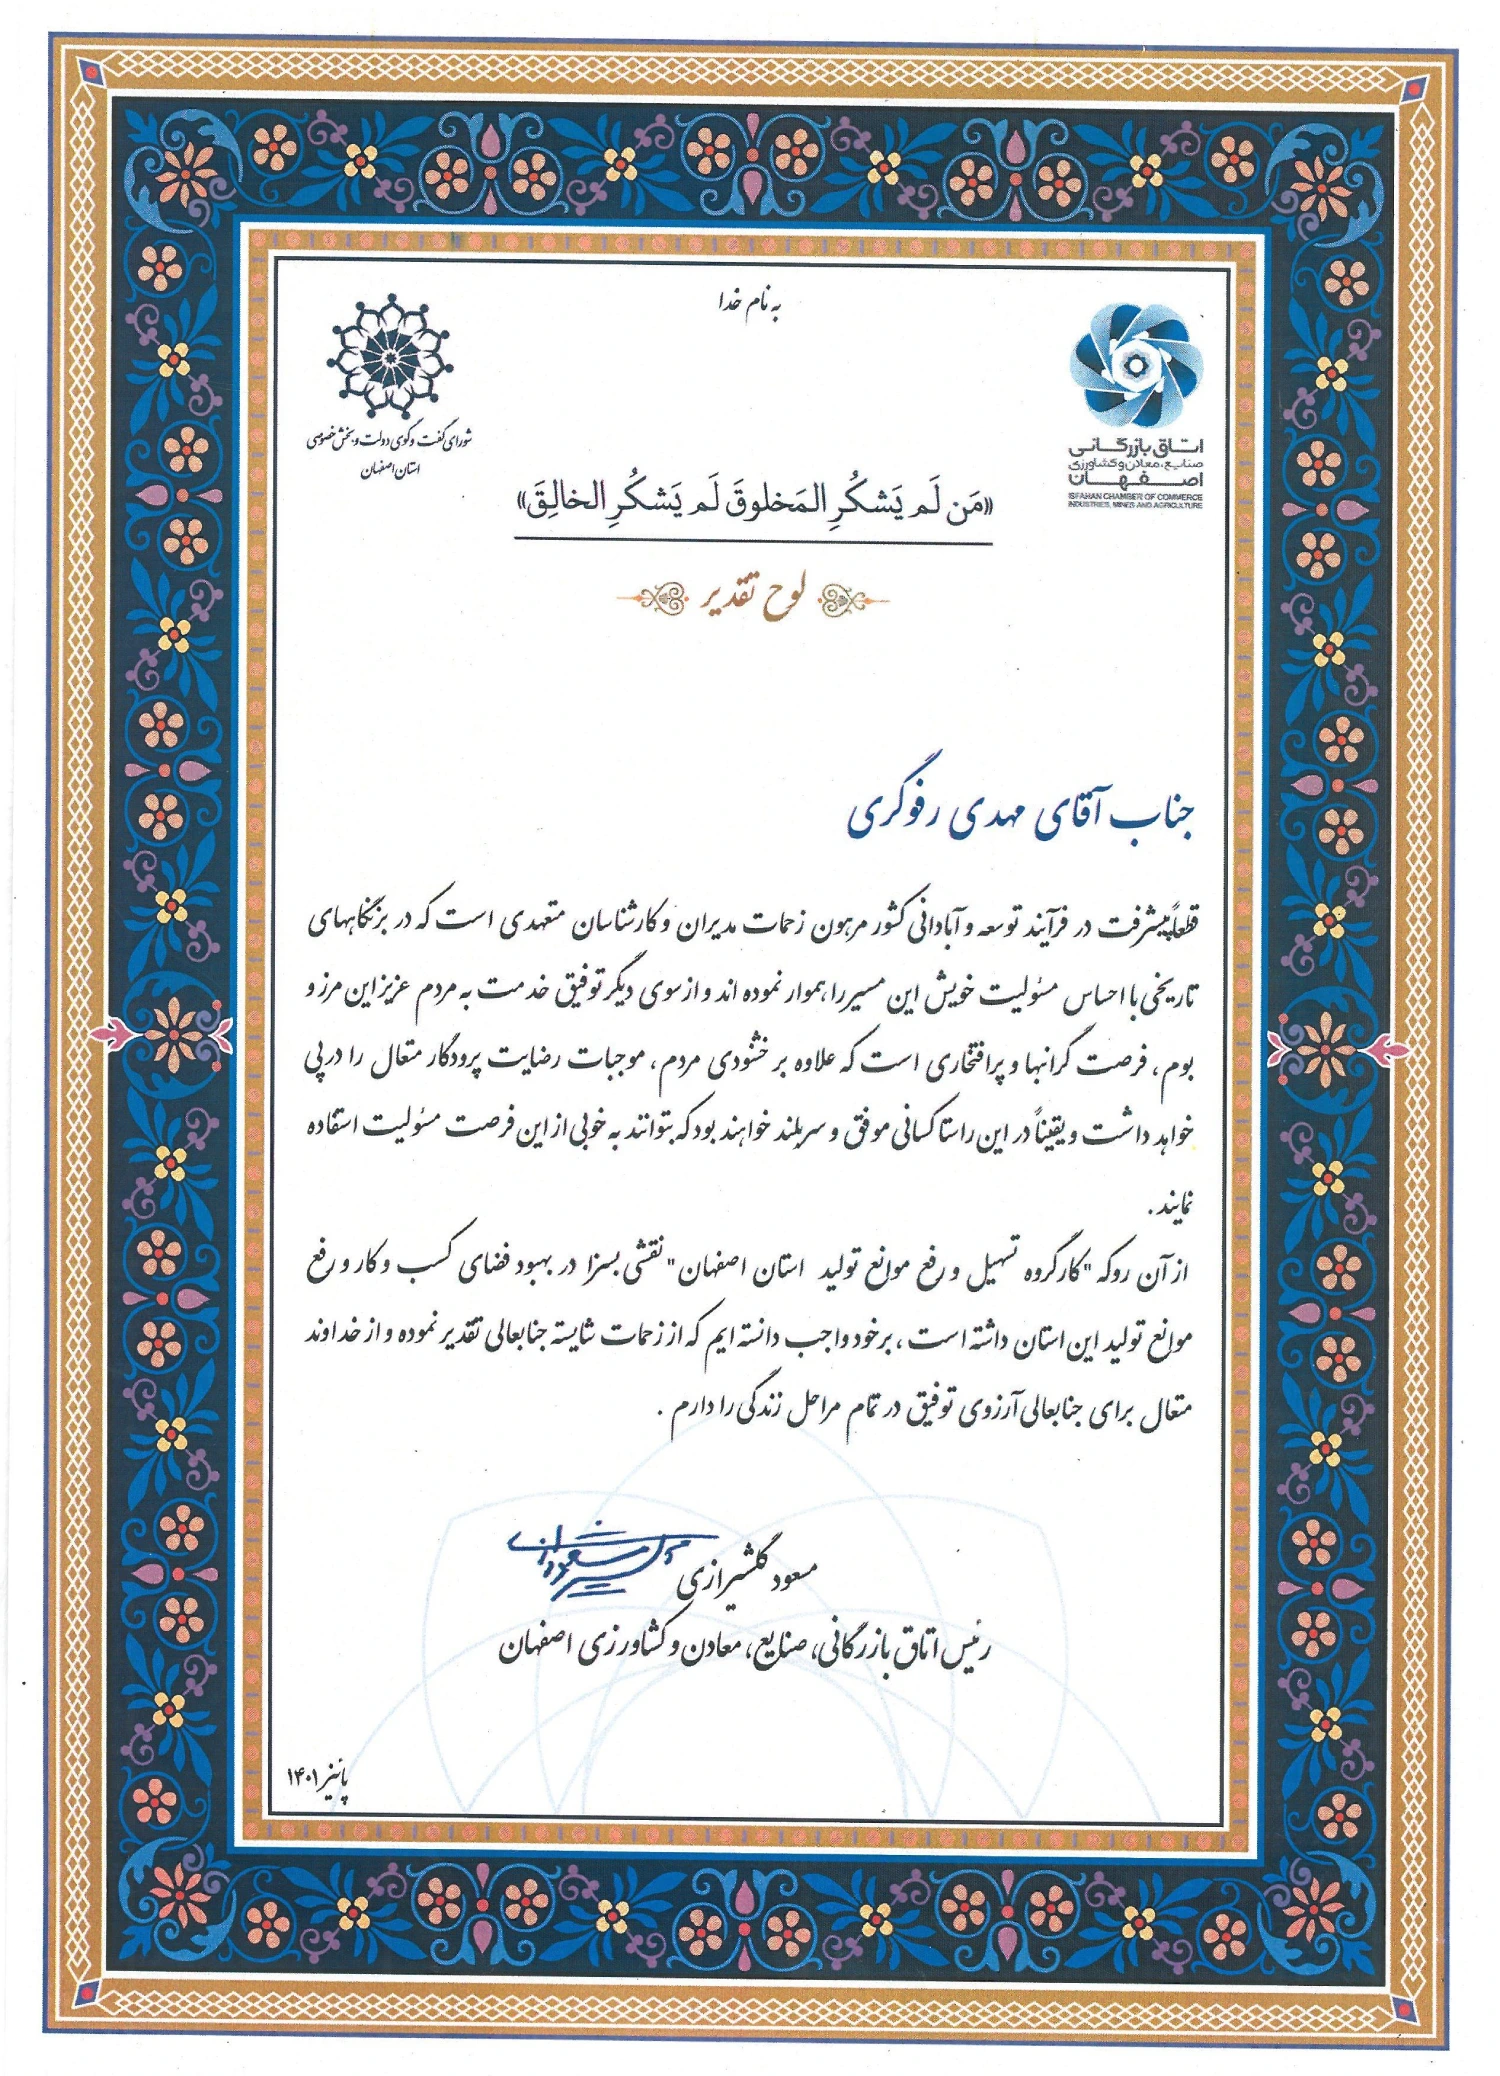 به نام خدا
شورای گفت و گوی دولت و بخش خصوصی
استان اصفهان
اتاق بازرگانی
صنایع، معادن و کشاورزی
اصفهان
ISFAHAN CHAMBER OF COMMERCE
INDUSTRIES, MINES AND AGRICULTURE
«مَن لَم یَشکُرِ المَخلوقَ لَم یَشکُرِ الخالِقَ»
لوح تقدیر
جناب آقای مهدی رفوگری
قطعاً پیشرفت در فرآیند توسعه و آبادانی کشور مرهون زحمات مدیران و کارشناسان متعهدی است که در بزنگاههای
تاریخی با احساس مسئولیت خویش این مسیر را هموار نموده اند و از سوی دیگر توفیق خدمت به مردم عزیز این مرز و
بوم، فرصت گرانبها و پرافتخاری است که علاوه بر خشنودی مردم، موجبات رضایت پرودگار متعال را در پی
خواهد داشت و یقیناً در این راستا کسانی موفق و سربلند خواهند بود که بتوانند به خوبی از این فرصت مسئولیت استفاده
نمایند.
از آن رو که "کارگروه تسهیل و رفع موانع تولید استان اصفهان" نقشی بسزا در بهبود فضای کسب و کار و رفع
موانع تولید این استان داشته است، بر خود واجب دانسته ایم که از زحمات شایسته جنابعالی تقدیر نموده و از خداوند
متعال برای جنابعالی آرزوی توفیق در تمام مراحل زندگی را دارم .
مسعود گلشیرازی
رئیس اتاق بازرگانی، صنایع، معادن و کشاورزی اصفهان
پائیز ۱۴۰۱